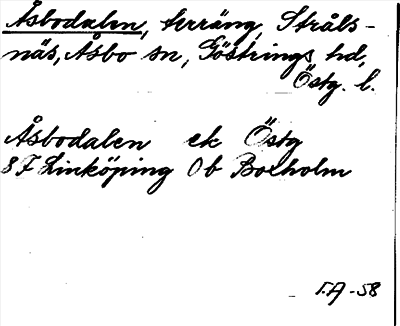 Åsbodalen, terräng, Stråls-
näs, Åsbo sn, Göstrings hd,
Östg. l.
Åsbodalen ek Östg
8 F Linköping 0 b Boxholm
T.A -58